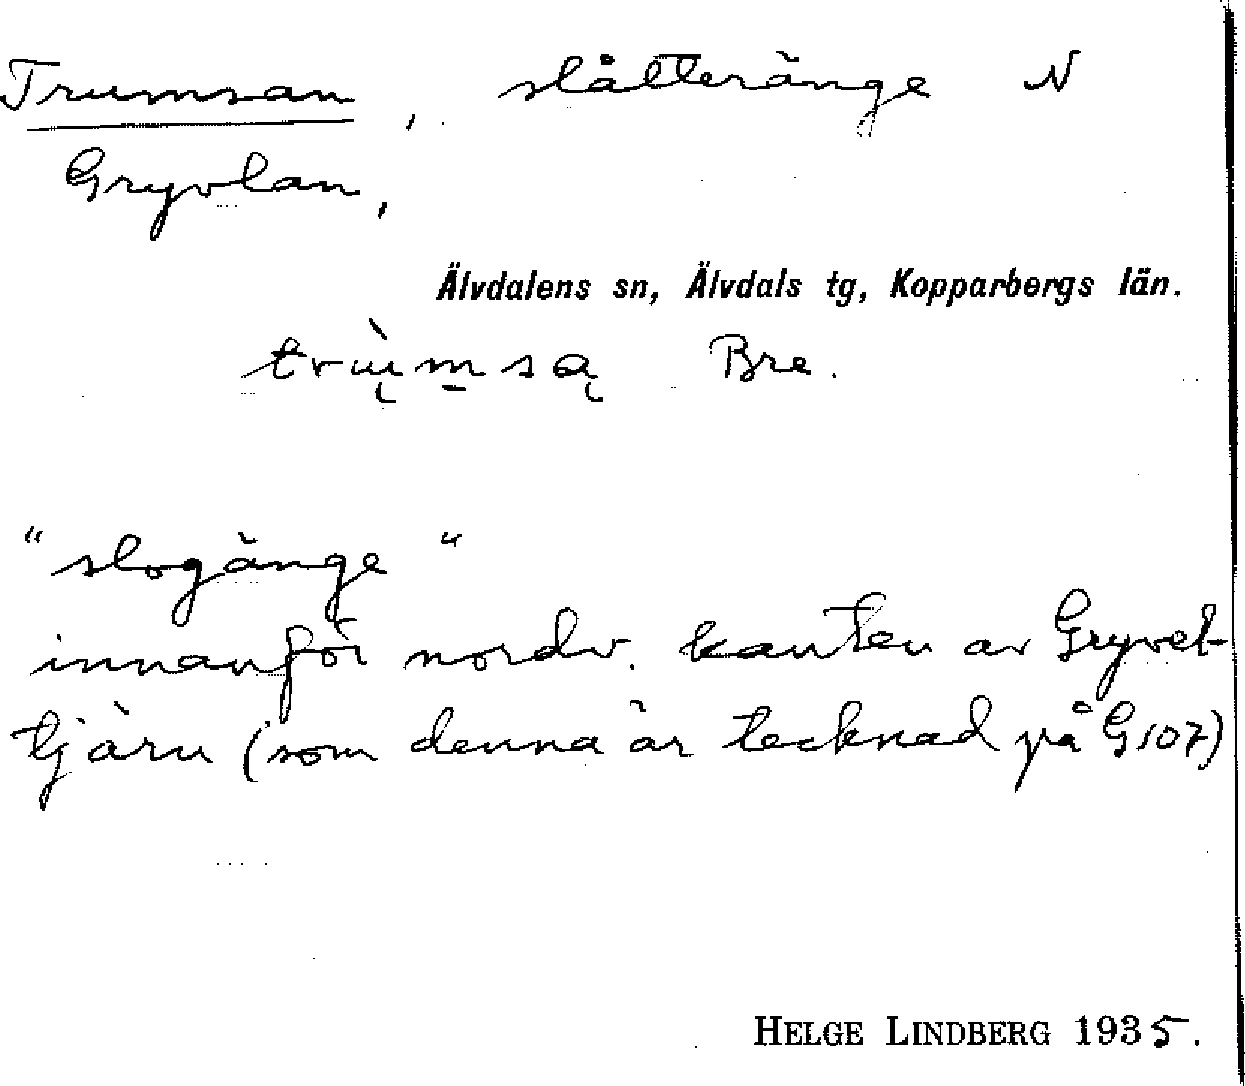 Trumsan, slåtteränge N
Gryvlan,
Älvdalens sn, Älvdals tg, Kopparbergs län.
Bre.
"slogänge"
innanför nordv. kanten av Gryvel-
tjärn (som denna är tecknad på G107)
HELGE LINDBERG 1935.